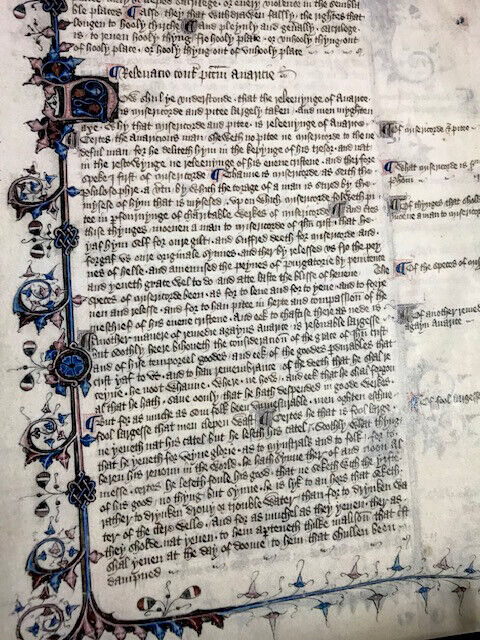 ble places ¶ Also they that withdrawen falsly the rightes that
longen to hooly chirche ¶ And pleynly and generally sacrilege
is to reven hooly thyng fro hooly place or unhooly thyng out
of hooly place or hooly thyng out of unhooly place
¶ Relevacio contra peccatum Avaricie
Now shul ye understonde that the releevynge of Avarice
is misericorde and pitee largely taken And men myghten
axe why that misericorde and pitee is releevynge of Avarice
Certes the Avaricious man sheweth no pitee ne misericorde to the nede
ful man for he deliteth hym in the kepynge of his tresor and nat
in the rescowynge ne releevynge of his evene cristene And therfore
speke I first of misericorde ¶ Thanne is misericorde as seith the
philosophre a vertu by which the corage of a man is stired by the
mysese of hym that is mysesed upon which misericorde folweth pi
tee in parfournynge of charitable werkes of misericorde And certes
thise thynges moeven a man to misericorde of Jhesu crist that he
yaf hym self for oure gilt and suffred deeth for misericorde and
forgaf us oure originale synnes and therby relessed us fro the pey
nes of helle and amenused the peynes of purgatorie by penitence
and yeveth grace wel to do and atte laste the blisse of hevene The
speces of misericorde been as for to lene and for to yeve and to foryeve
and relesse and for to han pitee in herte and compassion of the
meschief of his evene cristene and eek to chastise there as nede is
Another manere of remedie agayns Avarice is resonable largesse
but soothly heere bihoveth the consideracion of the grace of Jhesu crist
and of his temporel goodes and eek of the goodes perdurables that
crist yaf to us and to han remembrance of the deeth that he shal re
ceyve he noot whanne where ne how and eek that he shal forgon
al that he hath save oonly that he hath despended in goode werkes
But for as muche as som folk been unmesurable men oghten eschue
fool largesse that men clepen wast ¶ Certes he that is fool large
ne yeveth nat his catel but he leseth his catel Soothly what thyng
that he yeveth for veyne glorie as to mynstrals and to folk for to
beren his renoun in the world he hath synne ther of and noon al
messe certes he leseth foule his good that ne seketh with the yifte
of his good no thyng but synne he is lyk to an hors that seketh
rather to drynken drovy or trouble water than for to drynken wa
ter of the clere welle And for as muchel as they yeven ther as
they sholde nat yeven to hem aperteneth thilke malison that crist
shal yeven at the day of doome to hem that shullen been
dampned
¶ Of misericorde et pitee
¶ What misericorde is
¶ Of thynges that
moeve a man to misericorde
¶ Of the speces of
¶ Of another remedie
agayn Avarice
¶ Of fool largesse